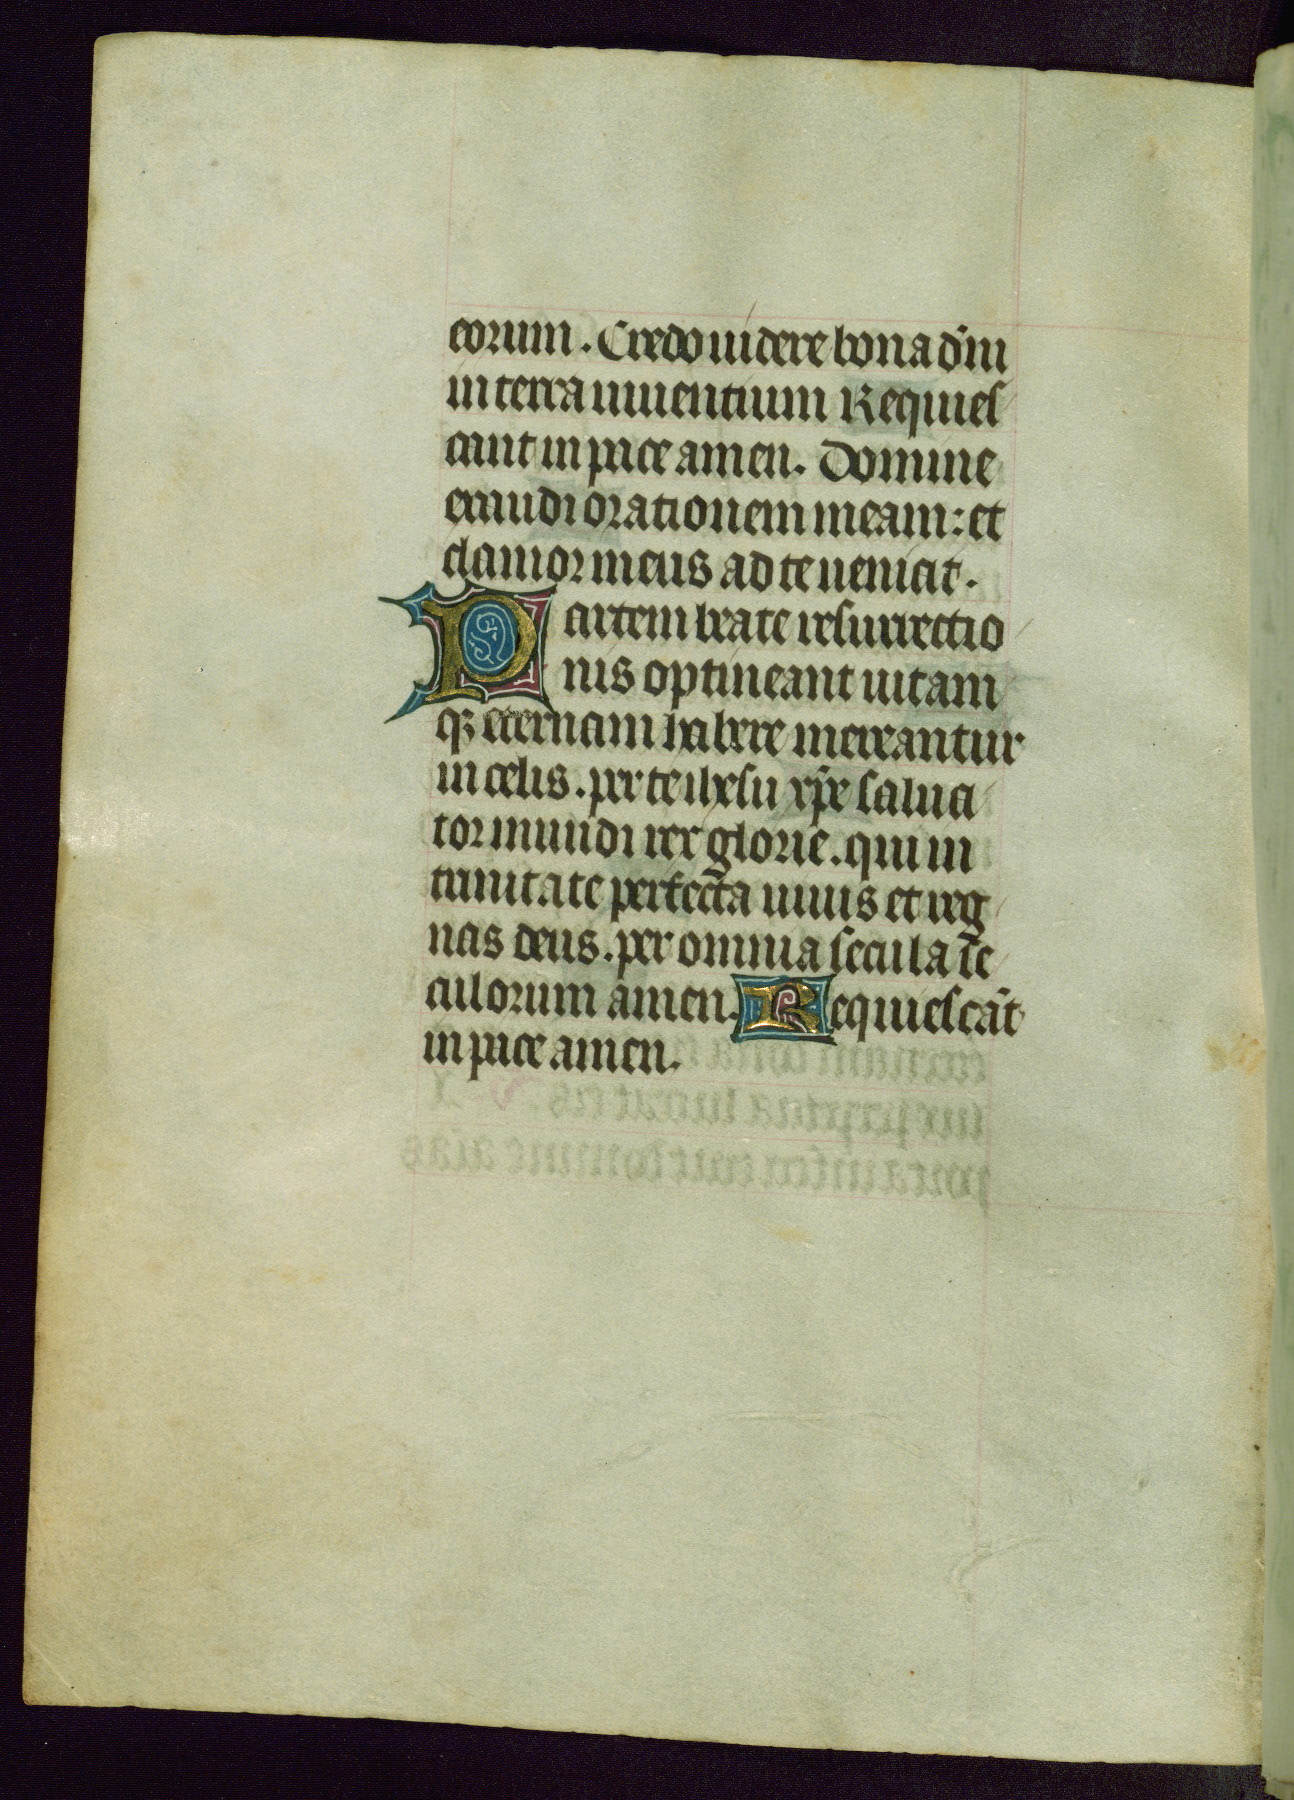 eorum. Credo uidere bona dñi
in terra uiuentium Requies
cant in pace amen. Domine
exaudi orationem meam: et
clamor meus ad te ueniat.
Partem beate resurrectio
nis optineant uitam
qꝫ eternam habere mereantur
in celis. per te ihesu xp̄e salua
tor mundi rex glorie. qui in
trinitate perfecta uiuis et reg
nas deus. per omnia secula se
culorum amen. Requiescāt
in pace amen.